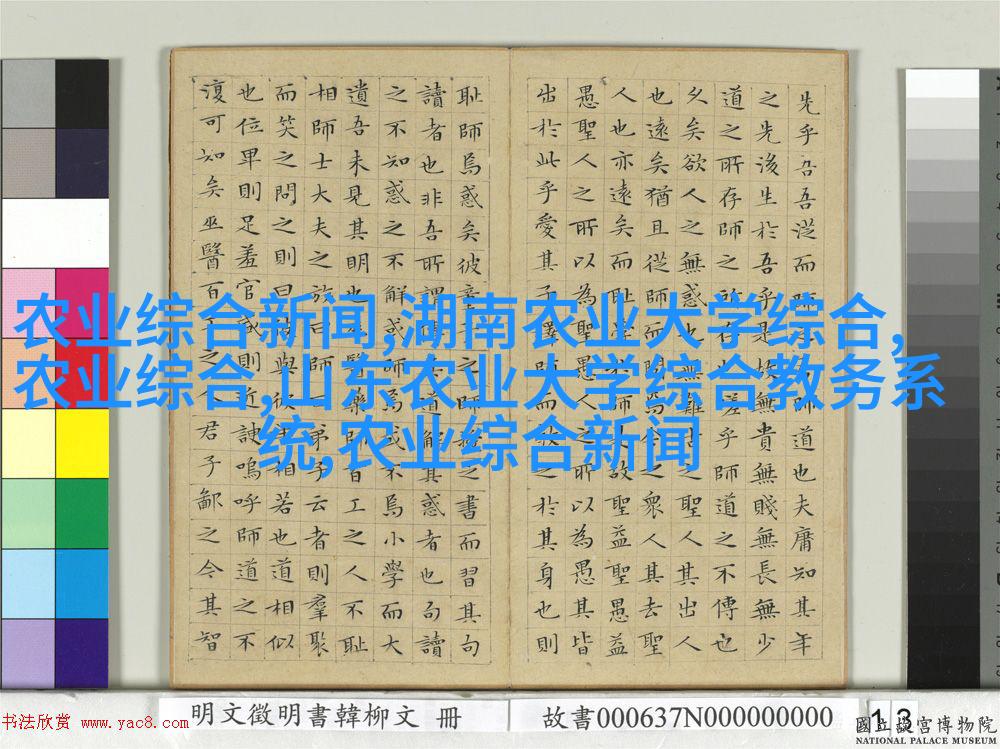 先乎吾吾從而師之吾師道也夫庸知其年
之先後生於吾乎是故無貴無賤無長無少
道之所存師之所存也嗟乎師道之不傳也
久矣欲人之無惑也無難古之聖人其出人
也遠矣猶且從師而問焉今之衆人其去聖
人也亦遠矣而恥學於師是故聖益聖愚益
愚聖人之所以為聖愚人之所以為愚其皆
出於此乎愛其子擇師而教之於其身也則
恥師焉惑矣彼童子之師授之書而習其句
讀者也非吾所謂傳其道解其惑者也句讀
之不知惑之不解或師焉或不焉小學而大
遺吾未見其明也醫藥師百工之人不恥
相師士大夫之族曰師曰弟子云者則羣聚
而笑之問之則曰彼與彼年相若也道相似
也位卑則足羞官盛則近諛嗚呼師道之不
復可知矣巫醫百工之人君子鄙之今其智
农业综合新闻,湖南农业大学综合,
农业综合,山东农业大学综合教务系
统,农业综合新闻
明文徵明書韓柳文 冊
故書000637N000000000
13
书法欣赏 www.yac8.com
國立故宮博物院
NATIONAL PALACE MUSEUM